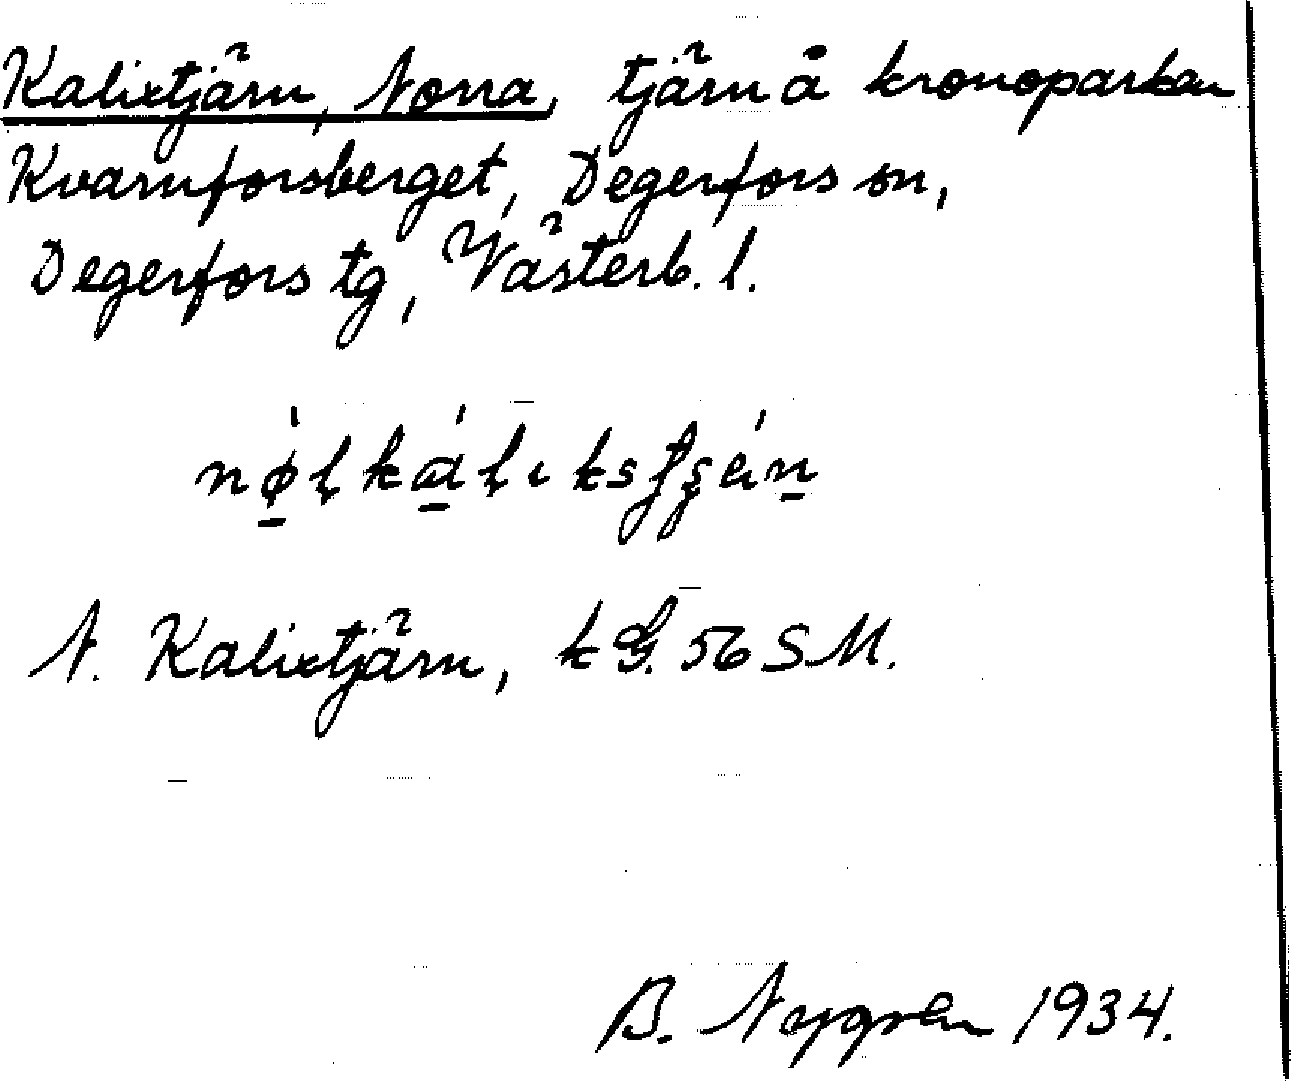 Kalixtjärn, Norra, tjärn å kronoparken
Kvarnforsberget, Degerfors sn,
Degerfors tg, Västerb. l.
N. Kalixtjärn, kG. 56 SM.
B. Nygren 1934.